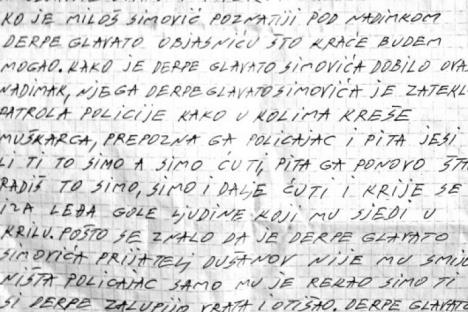 KO JE MILOŠ SIMOVIĆ POZNATIJI POD NADIMKOM
DERPE GLAVATO OBJASNIĆU ŠTO KRAĆE BUDEM
MOGAO. KAKO JE DERPE GLAVATO SIMOVIĆA DOBILO OVAJ
NADIMAK, NJEGA DERPE GLAVATO SIMOVIĆA JE ZATEKLA
PATROLA POLICIJE KAKO U KOLIMA KREŠE
MUŠKARCA, PREPOZNA GA POLICAJAC I PITA JESI
LI TI TO SIMO A SIMO ĆUTI, PITA GA PONOVO ŠTA
RADIŠ TO SIMO, SIMO I DALJE ĆUTI I KRIJE SE
IZA LEĐA GOLE LJUDINE KOJI MU SJEDI U
KRILU. POŠTO SE ZNALO DA JE DERPE GLAVATO
SIMOVIĆA PRIJATELJ DUŠANOV NIJE MU SMIJO
NIŠTA POLICAJAC SAMO MU JE REKAO SIMO TI
SI DERPE ZALUPIO VRATA I OTIŠAO. DERPE GLAVATO